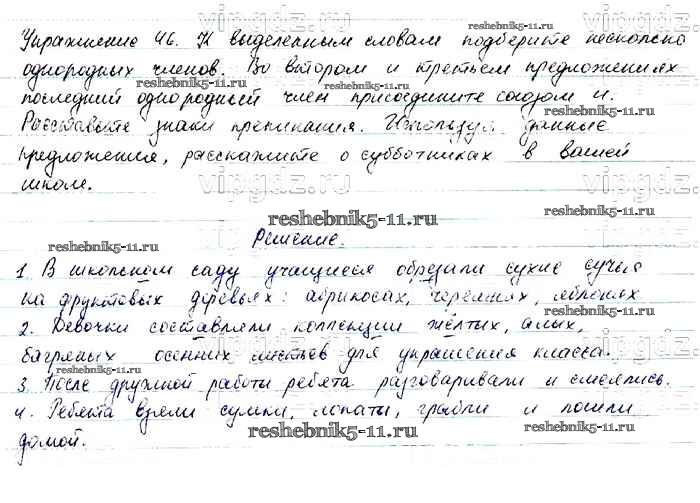 Упражнение 46. К выделенным словам подберите несколько
однородных членов. Во втором и третьем предложениях
последний однородный член присоедините союзом и.
Расставьте знаки препинания. Используя данные
предложения, расскажите о субботниках в вашей
школе.
Решение.
1. В школьном саду учащиеся обрезали сухие сучья
на фруктовых деревьях: абрикосах, черешнях, яблонях
2. Девочки составляли коллекции жёлтых, алых,
багряных осенних листьев для украшения класса.
3. После дружной работы ребята разговаривали и смеялись.
4. Ребята взяли сумки, лопаты, грабли и пошли
домой.
vipgdz.ru
reshebnik5-11.ru